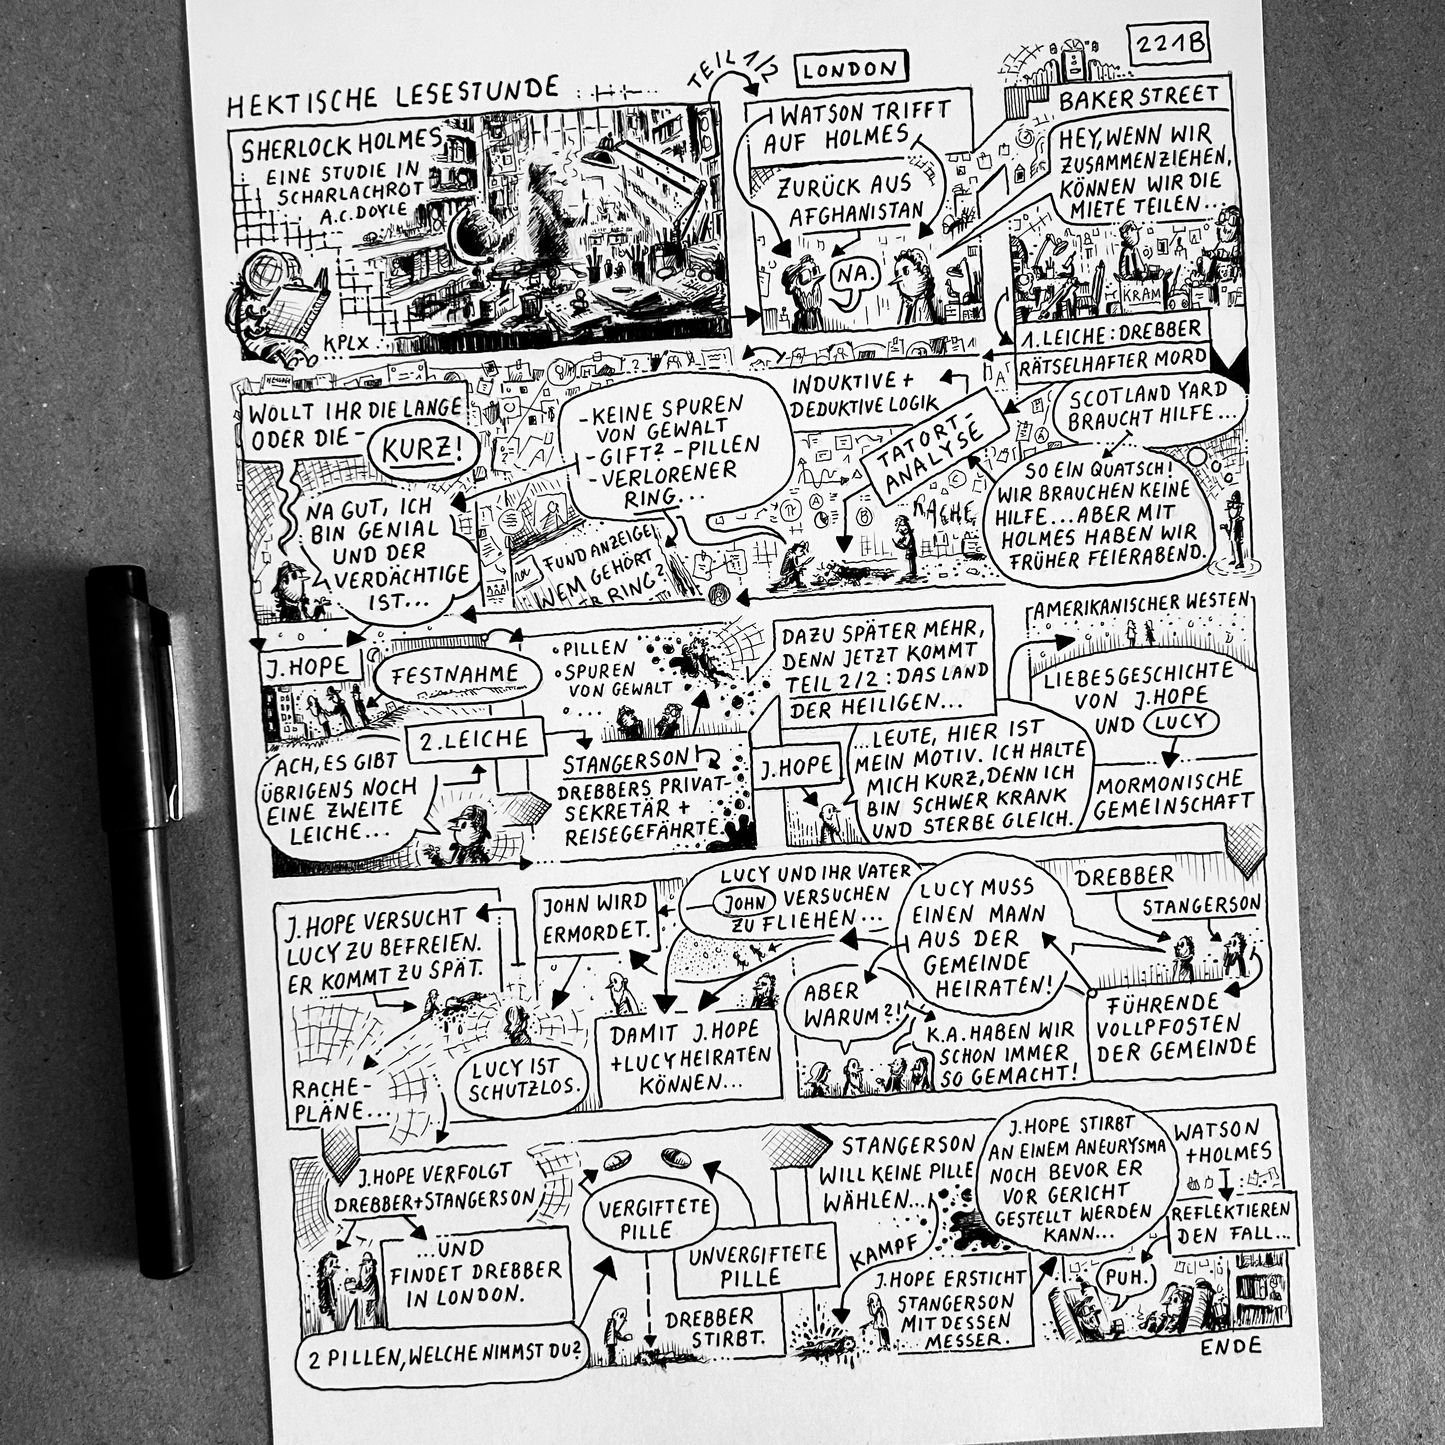 HEKTISCHE LESESTUNDE
SHERLOCK HOLMES
EINE STUDIE IN
SCHARLACHROT
A.C. DOYLE
KPLX
TEIL 1/2
LONDON
WATSON TRIFFT
AUF HOLMES
ZURÜCK AUS
AFGHANISTAN
NA.
221B
BAKER STREET
HEY, WENN WIR
ZUSAMMENZIEHEN,
KÖNNEN WIR DIE
MIETE TEILEN...
KRAM
1. LEICHE: DREBBER
RÄTSELHAFTER MORD
SCOTLAND YARD
BRAUCHT HILFE...
SO EIN QUATSCH!
WIR BRAUCHEN KEINE
HILFE... ABER MIT
HOLMES HABEN WIR
FRÜHER FEIERABEND.
TATORT-
ANALYSE
RACHE
INDUKTIVE +
DEDUKTIVE LOGIK
- KEINE SPUREN
VON GEWALT
- GIFT? - PILLEN
- VERLORENER
RING...
FUNDANZEIGE
WEM GEHÖRT
RING?
WOLLT IHR DIE LANGE
ODER DIE -
KURZ!
NA GUT, ICH
BIN GENIAL
UND DER
VERDÄCHTIGE
IST...
J. HOPE
FESTNAHME
ACH, ES GIBT
ÜBRIGENS NOCH
EINE ZWEITE
LEICHE...
2. LEICHE
STANGERSON
DREBBERS PRIVAT-
SEKRETÄR +
REISEGEFÄHRTE
PILLEN
SPUREN
VON GEWALT
...
DAZU SPÄTER MEHR,
DENN JETZT KOMMT
TEIL 2/2: DAS LAND
DER HEILIGEN...
J. HOPE
...LEUTE, HIER IST
MEIN MOTIV. ICH HALTE
MICH KURZ, DENN ICH
BIN SCHWER KRANK
UND STERBE GLEICH.
AMERIKANISCHER WESTEN
LIEBESGESCHICHTE
VON J. HOPE
UND LUCY
MORMONISCHE
GEMEINSCHAFT
DREBBER
STANGERSON
FÜHRENDE
VOLLPFOSTEN
DER GEMEINDE
LUCY MUSS
EINEN MANN
AUS DER
GEMEINDE
HEIRATEN!
ABER
WARUM?!
K.A. HABEN WIR
SCHON IMMER
SO GEMACHT!
LUCY UND IHR VATER
JOHN VERSUCHEN
ZU FLIEHEN...
DAMIT J. HOPE
+ LUCY HEIRATEN
KÖNNEN...
JOHN WIRD
ERMORDET.
LUCY IST
SCHUTZLOS.
J. HOPE VERSUCHT
LUCY ZU BEFREIEN.
ER KOMMT ZU SPÄT.
RACHE-
PLÄNE...
J. HOPE VERFOLGT
DREBBER + STANGERSON
...UND
FINDET DREBBER
IN LONDON.
2 PILLEN, WELCHE NIMMST DU?
VERGIFTETE
PILLE
UNVERGIFTETE
PILLE
DREBBER
STIRBT.
STANGERSON
WILL KEINE PILLE
WÄHLEN...
KAMPF
J. HOPE ERSTICHT
STANGERSON
MIT DESSEN
MESSER.
J. HOPE STIRBT
AN EINEM ANEURYSMA
NOCH BEVOR ER
VOR GERICHT
GESTELLT WERDEN
KANN...
WATSON
+ HOLMES
REFLEKTIEREN
DEN FALL...
PUH.
ENDE